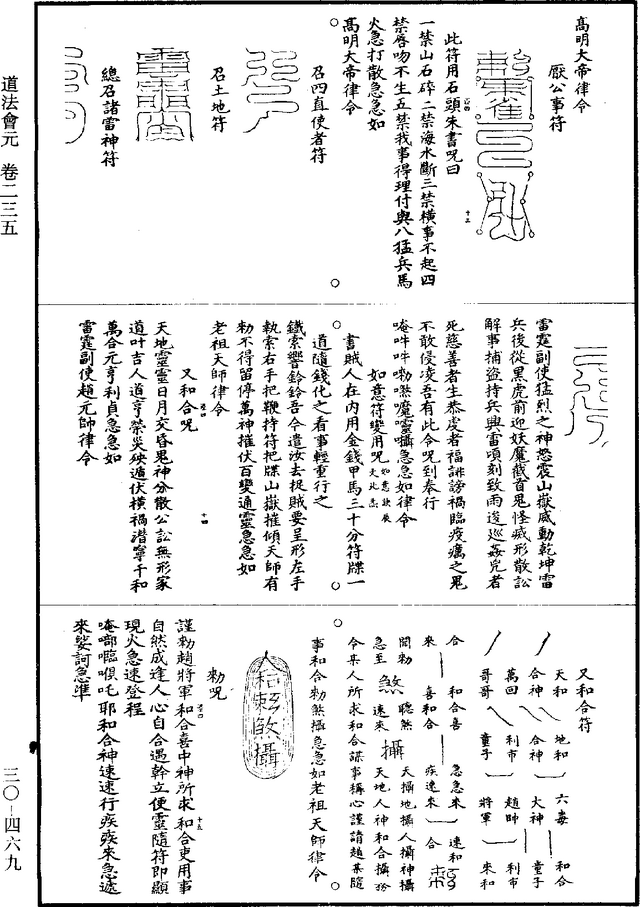 高明大帝律令
厭公事符
此符用石頭朱書呪曰
一禁山石碎二禁海水斷三禁橫事不起四
禁唇吻不生五禁我事得理付與八猛兵馬
火急打散急急如
高明大帝律令
召四直使者符
召土地符
總召諸雷神符
雷霆副使猛烈之神怒震山嶽威動乾坤雷
兵後從黑虎前迎妖魔馘首鬼怪滅形散訟
解事捕盜持兵興雷頃刻致雨逡巡姦宄者
死慈善者生恭虔者福誹謗禍臨疫癘之鬼
不敢侵凌吾有此令呪到奉行
唵吽吽嘞㘕魔囕攝急急如律令
如意符變用呪
書賊人在內用金錢甲馬三十分符牒一
道隨錢化之看事輕重行之
鐵索響鈴鈴吾今遣汝去捉賊要呈形左手
執索右手把鞭持符把牒山嶽摧傾天師有
勑不得留停萬神摧伏百變通靈急急如
老祖天師律令
又和合呪
天地靈靈日月交昏鬼神分散公訟無形家
道叶吉人道亨榮災殃遁伏橫禍潛寧千和
萬合元亨利貞急急如
雷霆副使趙元帥律令
又和合符
天和 地和 六毒 和合
合神 合神 大神 童子
萬回 利市 趙帥 利市
哥哥 童子 將軍 來和
合 和合喜 急急來 速和
來 喜和合 疾速來 合
聞勑 聰煞 天攝地攝人攝神攝
急至 煞 速來 攝 天地人神和合攝
令某人所求和合謀事稱心謹請趙某隨
事和合勑煞攝急急如老祖天師律令
勑呪
謹勑趙將軍和合喜中神所求和合吏用事
自然成逢人心自合遇幹立便靈隨符即顯
現火急速登程
唵啣囉𠺁吒耶和合神速速行疾疾來急遽
來娑訶急準
道法會元 卷二三五
三〇—四六九